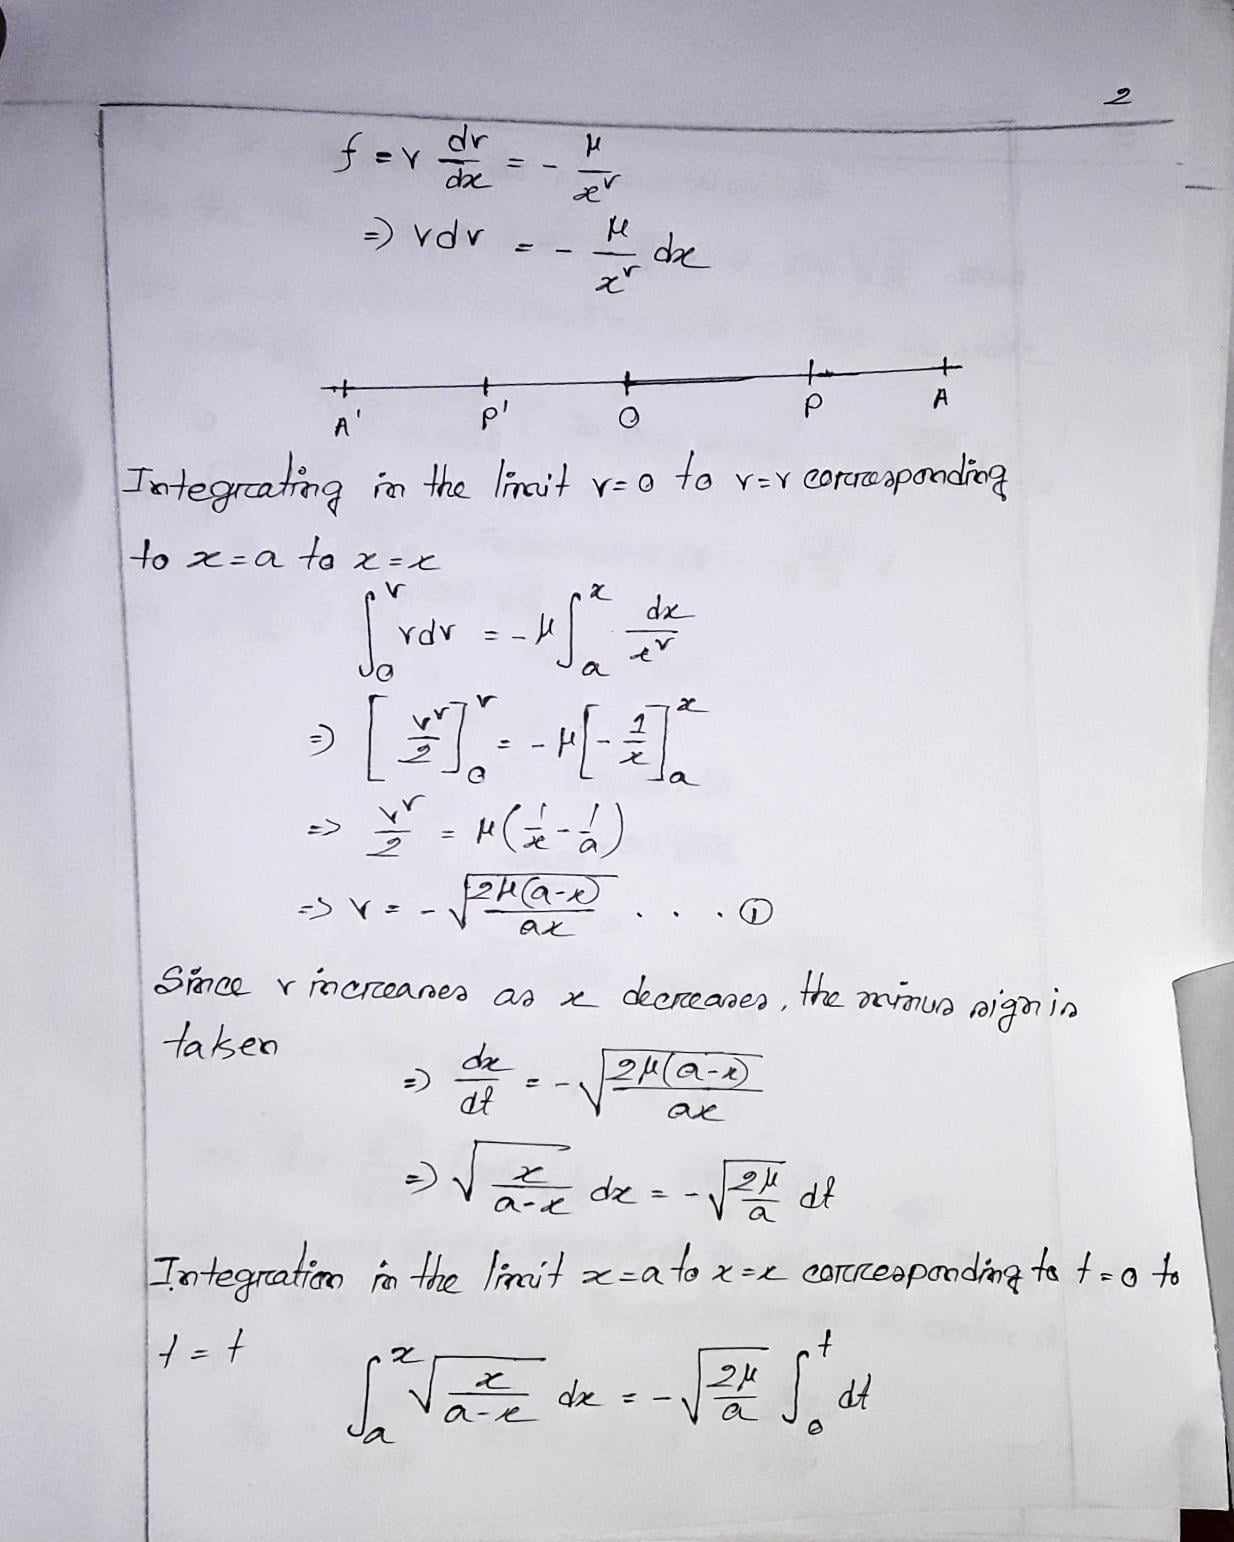 2
f = v dv/dx = - μ/x²
⇒ v dv = - μ/x² dx
A' P' O P A
Integrating in the limit v=0 to v=v corresponding
to x=a to x=x
∫₀ᵛ v dv = -μ ∫ₐˣ dx/x²
⇒ [v²/2]₀ᵛ = -μ[-1/x]ₐˣ
⇒ v²/2 = μ(1/x - 1/a)
⇒ v = - √(2μ(a-x)/ax) . . . . ①
Since v increases as x decreases, the minus sign is
taken
⇒ dx/dt = - √(2μ(a-x)/ax)
⇒ √(x/(a-x)) dx = - √(2μ/a) dt
Integration in the limit x=a to x=x corresponding to t=0 to
t=t
∫ₐˣ √(x/(a-x)) dx = - √(2μ/a) ∫₀ᵗ dt